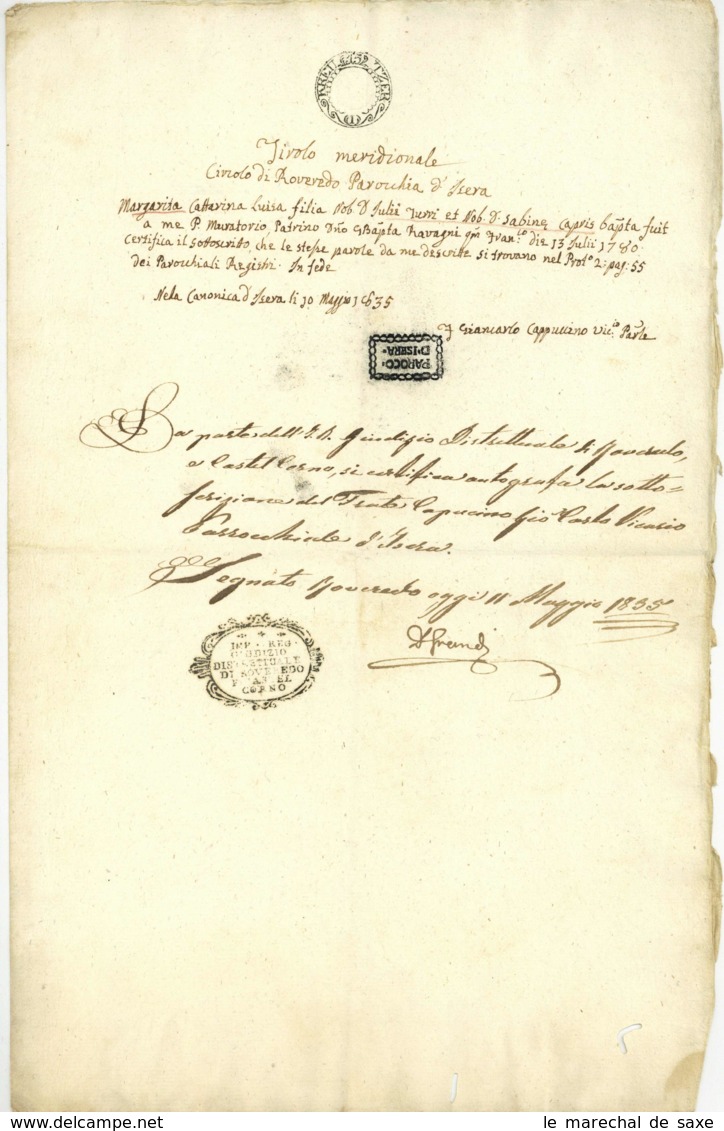 KREUTZER 15
Tirolo meridionale
Circolo di Roveredo Parocchia d'Isera
Margarita Cattarina Luisa filia Nob. D. Julii Turri et Nob. D. Sabinę Capris bapta fuit
a me P. Muratorio, Patrino Dno GBapta Ravagni qm Fran.co die 13 Julii 1780
Certifica il sottoscritto, che le stesse parole da me descritte si trovano nel Prot.o 2: pag: 55
dei Parocchiali Registri. In fede
Nela Canonica d'Isera li 10 Maggio 1835
F Giancarlo Cappuccino Vic.o Par.le
PAROCO
D'ISERA
Da parte dell'I. R. Giudizio Distrettuale di Roveredo,
e Castel Corno, si certifica autografa la sotto=
scrizione del Frate Capucino Gio Carlo Vicario
Parrocchiale d'Isera.
Segnato Roveredo oggi 11 Maggio 1835
IMP. REG.
GIUDIZIO
DISTRETTUALE
DI ROVEREDO
CORNO
le marechal de saxe